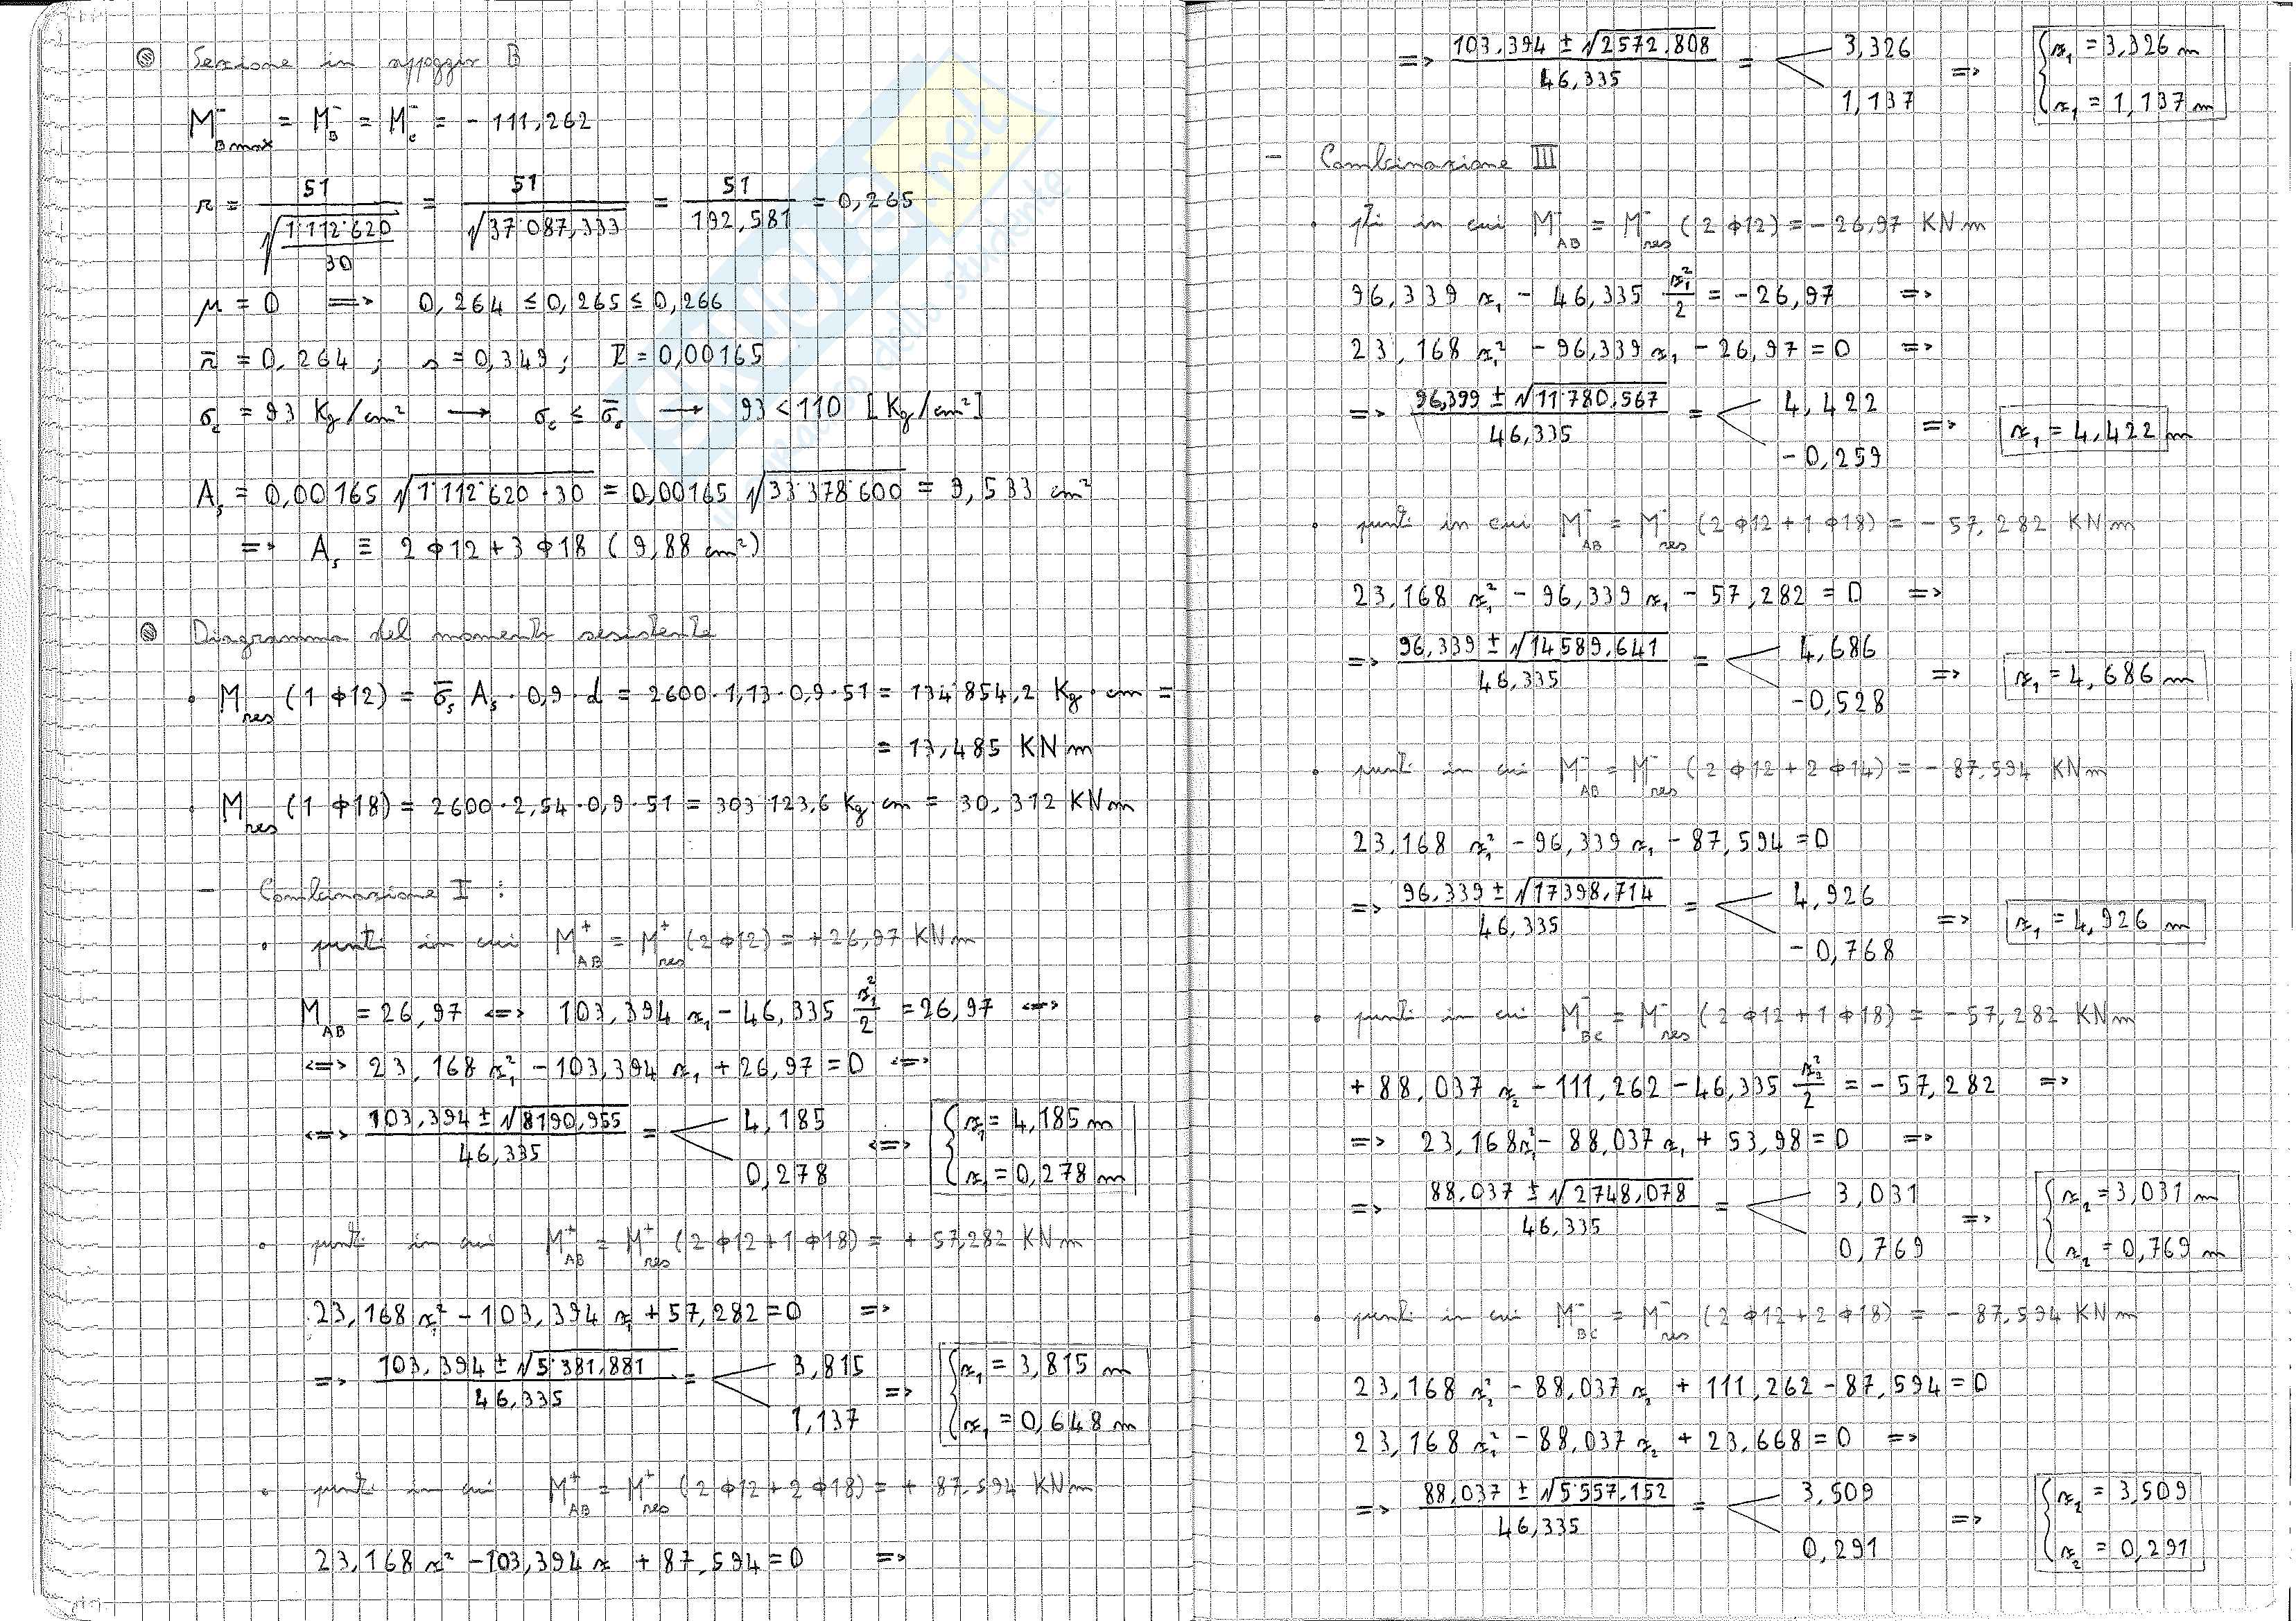 Sezione in appoggio B
M⁻_Bmax = M⁻_B = M⁻_C = - 111,262
r = 51 / √(1'112'620 / 30) = 51 / √37'087,333 = 51 / 192,581 = 0,265
μ = 0 => 0,264 ≤ 0,265 ≤ 0,266
r̄ = 0,264 ; s = 0,349 ; t = 0,00165
σ_c = 93 Kg/cm² → σ_c ≤ σ̄_c → 93 < 110 [Kg/cm²]
A_s = 0,00165 √1'112'620·30 = 0,00165 √33'378'600 = 9,533 cm²
=> A_s ≡ 2 ϕ12 + 3 ϕ18 (9,88 cm²)
Diagramma del momento resistente
• M_res (1 ϕ12) = σ̄_s A_s · 0,9 · d = 2600 · 1,13 · 0,9 · 51 = 134'854,2 Kg·cm =
= 13,485 KN m
• M_res (1 ϕ18) = 2600 · 2,54 · 0,9 · 51 = 303'123,6 Kg·cm = 30,312 KN m
- Combinazione I :
• punti in cui M⁺_AB = M⁺_res (2 ϕ12) = +26,97 KN m
M_AB = 26,97 <=> 103,394 x₁ - 46,335 x₁²/2 = 26,97 <=>
<=> 23,168 x₁² - 103,394 x₁ + 26,97 = 0 <=>
<=> (103,394 ± √8190,955) / 46,335 = 4,185 0,278 <=> { x₁ = 4,185 m x₁ = 0,278 m
• punti in cui M⁺_AB = M⁺_res (2 ϕ12 + 1 ϕ18) = + 57,282 KN m
23,168 x₁² - 103,394 x₁ + 57,282 = 0 =>
=> (103,394 ± √5'381,881) / 46,335 = 3,815 1,137 => { x₁ = 3,815 m x₁ = 0,648 m
• punti in cui M⁺_AB = M⁺_res (2 ϕ12 + 2 ϕ18) = + 87,594 KN m
23,168 x² - 103,394 x + 87,594 = 0 =>
=> (103,394 ± √2572,808) / 46,335 = 3,326 1,137 => { x₁ = 3,326 m x₁ = 1,137 m
- Combinazione III
• pti in cui M⁻_AB = M⁻_res (2 ϕ12) = - 26,97 KN m
96,339 x₁ - 46,335 x₁²/2 = - 26,97 =>
23,168 x₁² - 96,339 x₁ - 26,97 = 0 =>
=> (96,399 ± √11'780,567) / 46,335 = 4,422 -0,259 => x₁ = 4,422 m
• punti in cui M⁻_AB = M⁻_res (2 ϕ12 + 1 ϕ18) = - 57,282 KN m
23,168 x₁² - 96,339 x₁ - 57,282 = 0 =>
=> (96,339 ± √14589,641) / 46,335 = 4,686 -0,528 => x₁ = 4,686 m
• punti in cui M⁻_AB = M⁻_res (2 ϕ12 + 2 ϕ14) = - 87,594 KN m
23,168 x₁² - 96,339 x₁ - 87,594 = 0
=> (96,339 ± √17398,714) / 46,335 = 4,926 -0,768 => x₁ = 4,926 m
• punti in cui M⁻_BC = M⁻_res (2 ϕ12 + 1 ϕ18) = - 57,282 KN m
+ 88,037 x₂ - 111,262 - 46,335 x₂²/2 = - 57,282 =>
=> 23,168 x₁² - 88,037 x₁ + 53,98 = 0 =>
=> (88,037 ± √2748,078) / 46,335 = 3,031 0,769 => { x₂ = 3,031 m x₂ = 0,769 m
• punti in cui M⁻_BC = M⁻_res (2 ϕ12 + 2 ϕ18) = - 87,594 KN m
23,168 x₂² - 88,037 x₂ + 111,262 - 87,594 = 0
23,168 x₂² - 88,037 x₂ + 23,668 = 0 =>
=> (88,037 ± √5'557,152) / 46,335 = 3,509 0,291 => { x₂ = 3,509 x₂ = 0,291